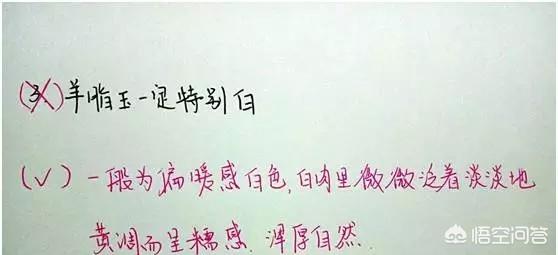 (3.)羊脂玉一定特别白
(✓)一般为偏暖感白色,白肉里微微泛着淡淡地
黄润而呈糯感.浑厚自然.
悟空问答